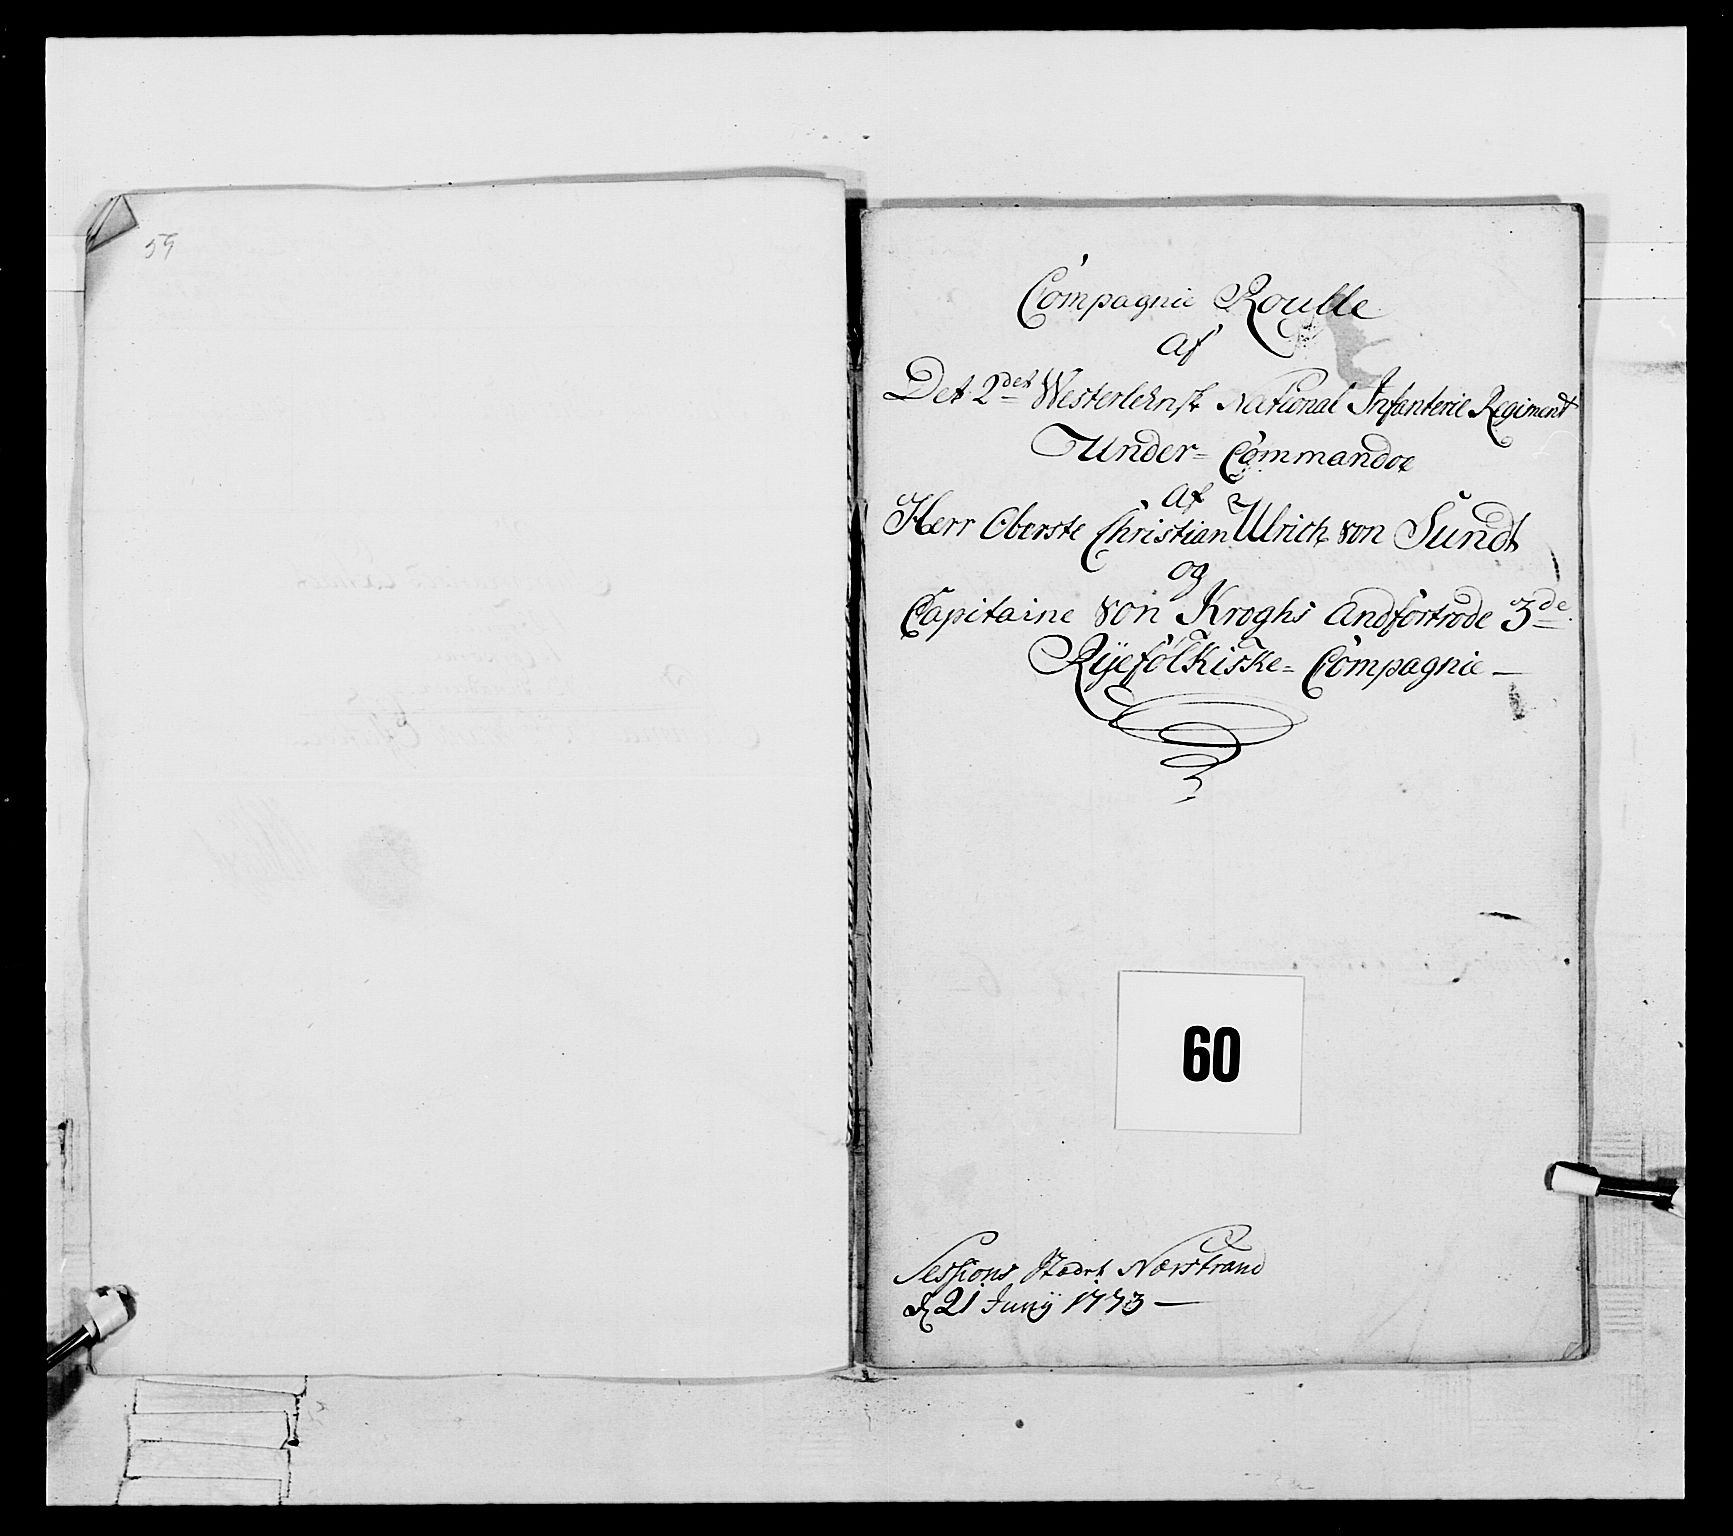 59
Compagnie Roulle
af
Det 2det Westerlehnsk National Infanterie Regiment
Under= Commandoe
af
Herr Oberste Christian Ulrich von Sundt
og
Capitaine von Kroghs andfortrode 3de
Ryefølkiske= Compagnie —
60
Sessions Stædet Nærstrand
d 21 Junÿ 1773 —